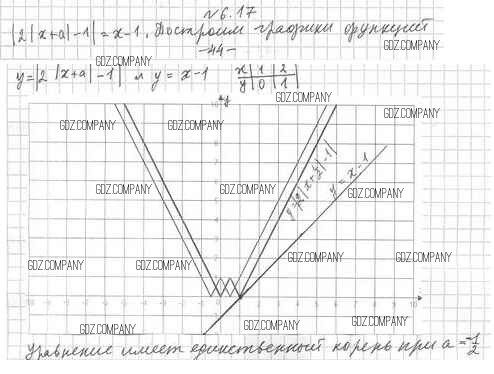 №6.17
|2|x+a|-1|=x-1. Построим графики функций
GDZ.COMPANY -44- GDZ.COMPANY
y=|2|x+a|-1| и y=x-1 x|1|2|
y|0|1|
GDZ.COMPANY GDZ.COMPANY
10 y
GDZ.COMPANY GDZ.COMPANY GDZ.COMPANY
GDZ.COMPANY GDZ.COMPANY GDZ.COMPANY
y=x-1
GDZ.COMPANY GDZ.COMPANY GDZ.COMPANY
GDZ.COMPANY GDZ.COMPANY GDZ.COMPANY
Уравнение имеет единственный корень при a=-1/2